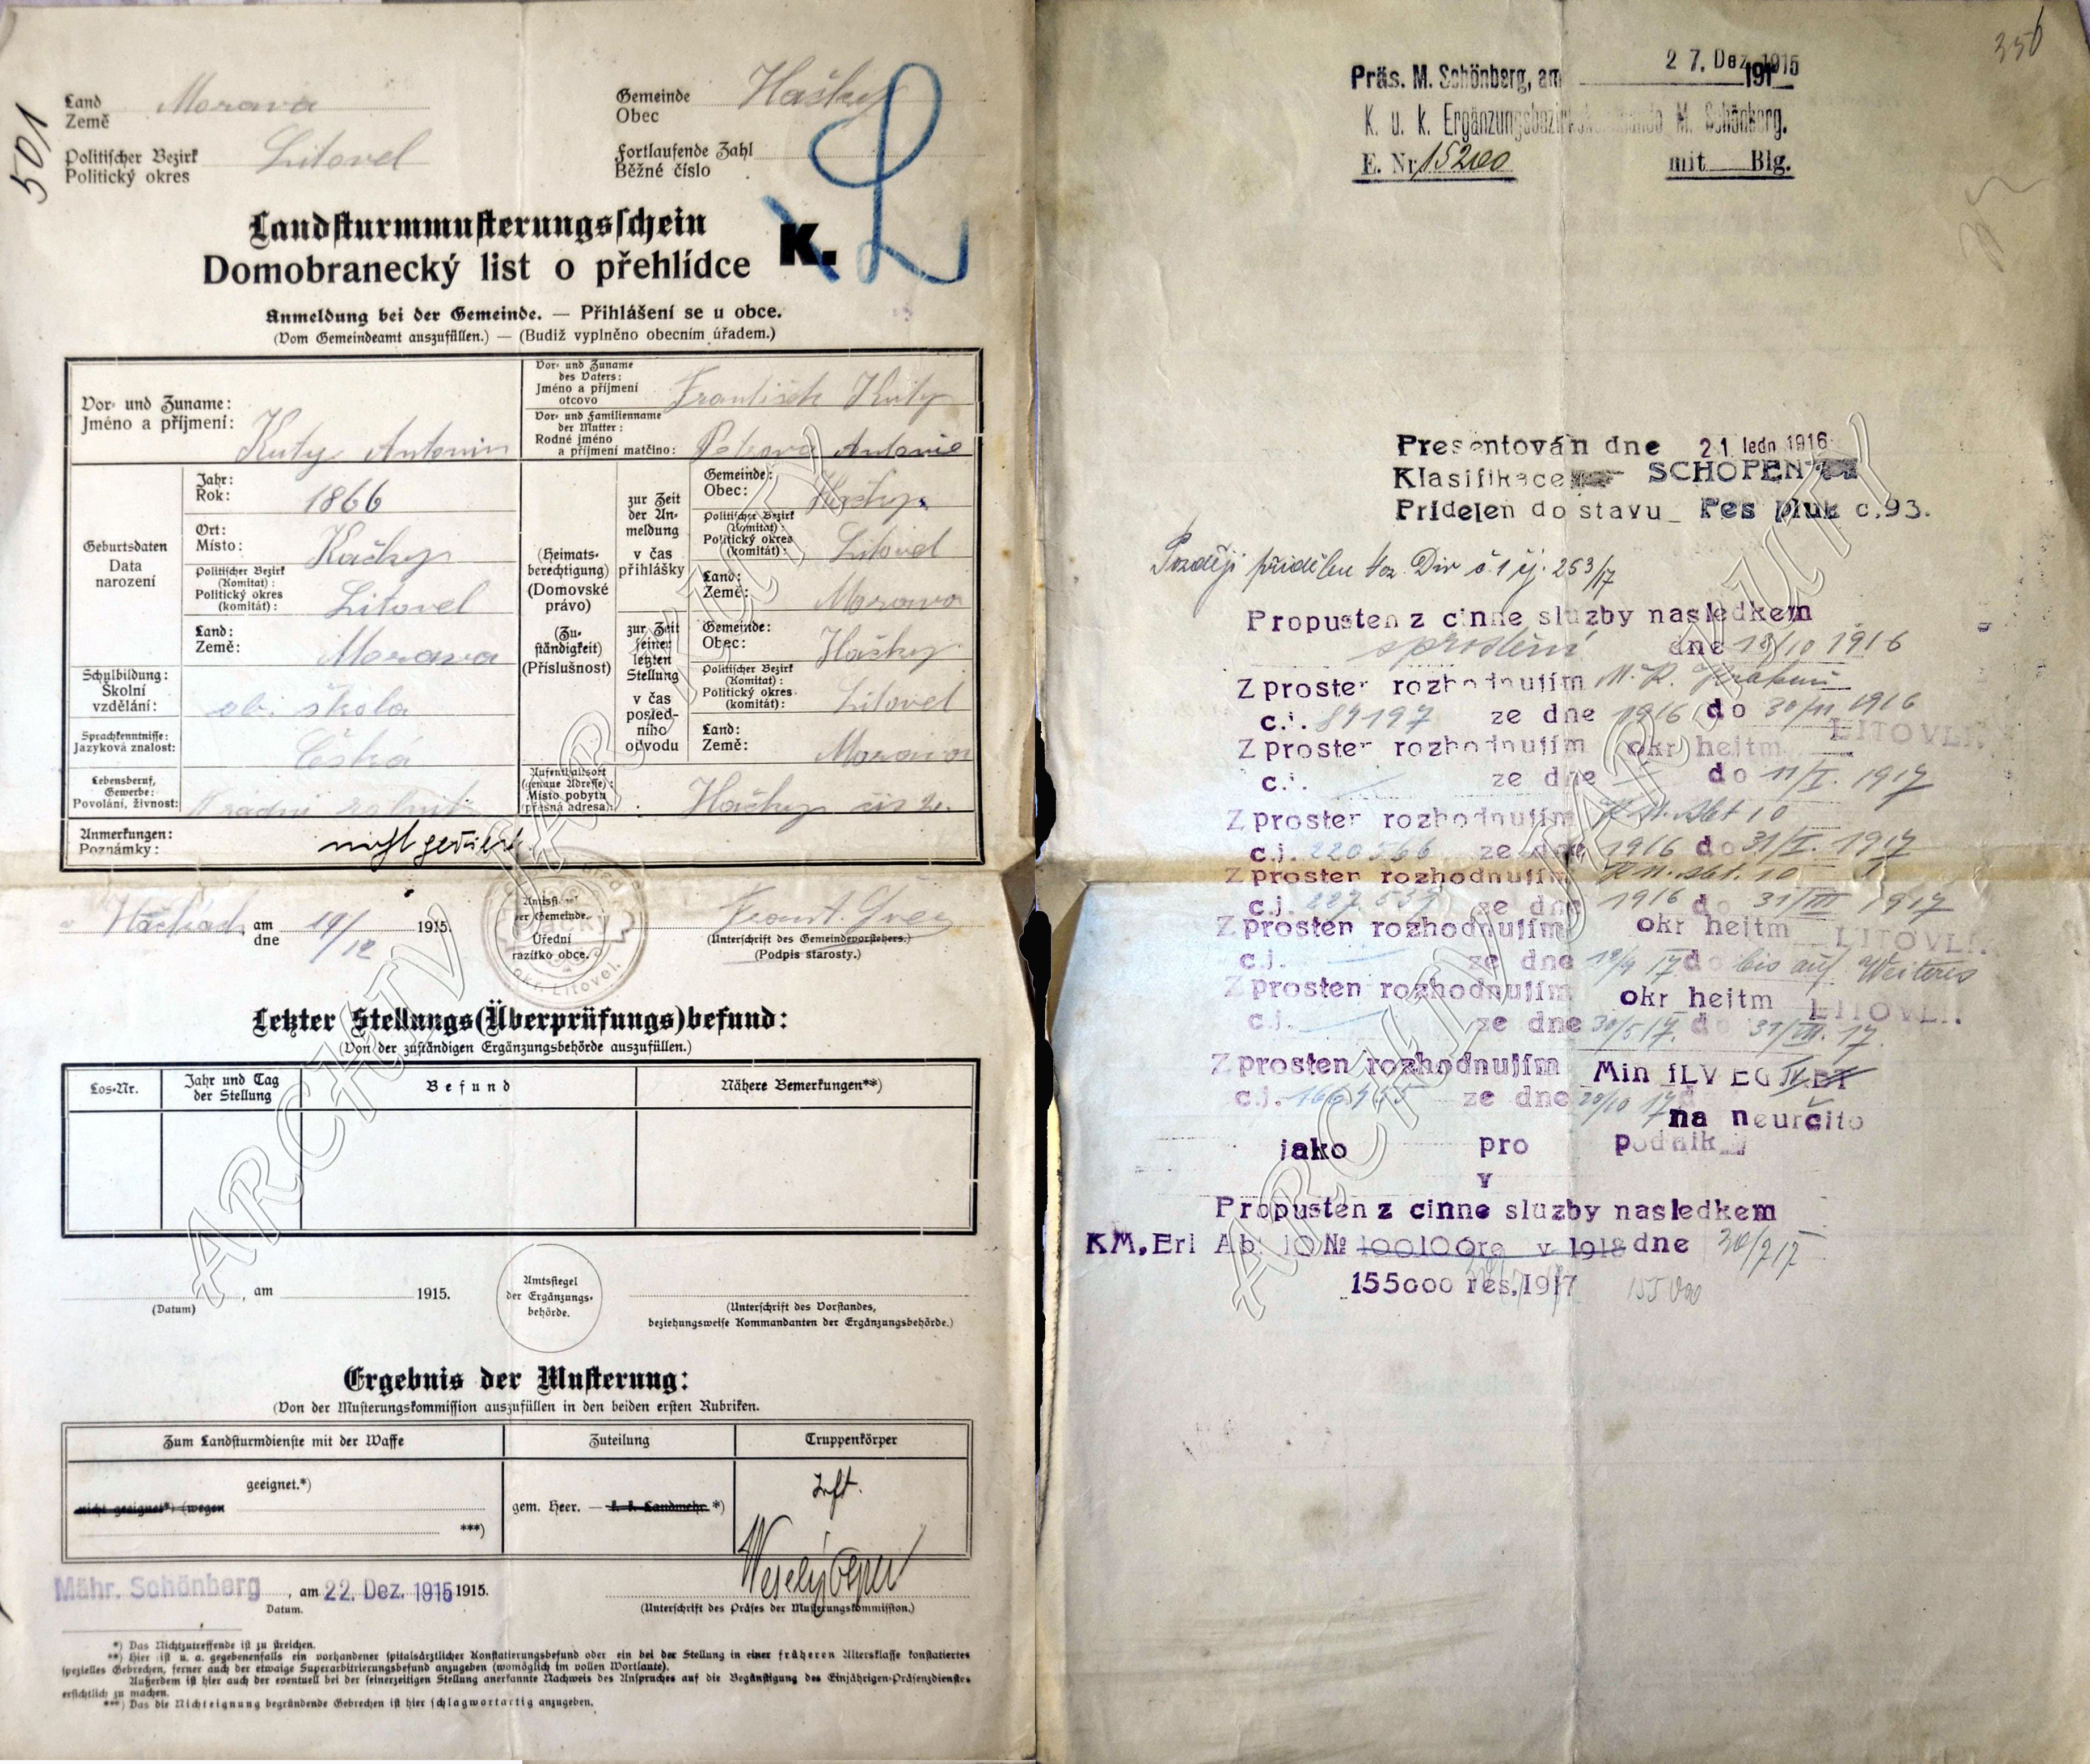 501
Land Země Morava
Gemeinde Obec Hačky
Politischer Bezirk Politický okres Litovel
Fortlaufende Zahl Běžné číslo
L
Landsturmmusterungsschein
Domobranecký list o přehlídce K.
Anmeldung bei der Gemeinde. — Přihlášení se u obce.
(Vom Gemeindeamt auszufüllen.) — (Budiž vyplněno obecním úřadem.)
Vor- und Zuname:
Jméno a příjmení: Kuty Antonin
Vor- und Zuname
des Vaters:
Jméno a příjmení
otcovo František Kuty
Vor- und Familienname
der Mutter:
Rodné jméno
a příjmení matčino: Antonie
Geburtsdaten
Data
narození
Jahr:
Rok: 1866
Ort:
Místo: Hačky
Politischer Bezirk
(Komitat):
Politický okres
(komitát): Litovel
Land:
Země: Morava
Schulbildung:
Školní
vzdělání: ob. škola
Sprachkenntnisse:
Jazyková znalost: Česká
Lebensberuf,
Gewerbe:
Povolání, živnost: rolník
(Heimats-
berechtigung)
(Domovské
právo)
(Zu-
ständigkeit)
(Příslušnost)
zur Zeit
der An-
meldung
v čas
přihlášky
Gemeinde:
Obec: Hačky
Politischer Bezirk
(Komitat):
Politický okres
(komitát): Litovel
Land:
Země: Morava
zur Zeit
seiner
letzten
Stellung
v čas
posled-
ního
odvodu
Gemeinde:
Obec: Hačky
Politischer Bezirk
(Komitat):
Politický okres
(komitát): Litovel
Land:
Země: Morava
Aufenthaltsort
(genaue Adresse):
Místo pobytu
(přesná adresa): Hačky čís 2.
Anmerkungen:
Poznámky: nicht gedient
Hačkách, am dne 19/12 1915.
Amtssiegel
der Gemeinde.
Úřední
razítko obce.
okr. Litovel.
(Unterschrift des Gemeindevorstehers.)
(Podpis starosty.)
Letzter Stellungs(Überprüfungs)befund:
(Von der zuständigen Ergänzungsbehörde auszufüllen.)
Los-Nr.
Jahr und Tag
der Stellung
Befund
Nähere Bemerkungen**)
, am 1915.
(Datum)
Amtssiegel
der Ergänzungs-
behörde.
(Unterschrift des Vorstandes,
beziehungsweise Kommandanten der Ergänzungsbehörde.)
Ergebnis der Musterung:
(Von der Musterungskommission auszufüllen in den beiden ersten Rubriken.
Zum Landsturmdienste mit der Waffe
Zuteilung
Truppenkörper
geeignet.*)
nicht geeignet*) (wegen
***)
gem. Heer. — k. k. Landwehr *)
Inft.
Mähr. Schönberg, am 22. Dez. 1915 1915.
Datum.
(Unterschrift des Präses der Musterungskommission.)
*) Das Nichtzutreffende ist zu streichen.
**) Hier ist u. a. gegebenenfalls ein vorhandener spitalsärztlicher Konstatierungsbefund oder ein bei der Stellung in einer früheren Altersklasse konstatiertes
spezielles Gebrechen, ferner auch der etwaige Superarbitrierungsbefund anzugeben (womöglich im vollen Wortlaute).
Außerdem ist hier auch der eventuell bei der seinerzeitigen Stellung anerkannte Nachweis des Anspruches auf die Begünstigung des Einjährigen-Präsenzdienstes
ersichtlich zu machen.
***) Das die Nichteignung begründende Gebrechen ist hier schlagwortartig anzugeben.
ARCHIV PAR
356
Präs. M. Schönberg, am 27. Dez 1915
K. u. k. Ergänzungsbezirkskommando M. Schönberg.
E. Nr 15200 mit Blg.
Presentován dne 21 ledn 1916
Klasifikace SCHOPEN
Pridelen do stavu Pes pluk c.93.
Později přidělen Div č. 1 čj. 253/17
Propusten z cinne sluzby nasledkem
sproštění dne 18/10 1916
Z prosten rozhodnutím
c.j. 84197 ze dne 1916 do 30/11 1916
Z prosten rozhodnutím okr hejtm LITOVLI.
c.j. ze dne do 11/I. 1917
Z prosten rozhodnutím
c.j. 220566 ze dne 1916 do 31/I. 1917
Z prosten rozhodnutím
c.j. 227.537 ze dne 1916 do 31/III 1917
Z prosten rozhodnutím okr hejtm LITOVLI.
c.j. ze dne 17 do bis auf Weiteres
Z prosten rozhodnutím okr hejtm LITOVLI.
c.j. ze dne 30/5 17. do 31/VII. 17.
Z prosten rozhodnutím Min fLV
c.j. ze dne 20/10 17
na neurčito
jako pro podnik
v
Propusten z cinne sluzby nasledkem
KM. Erl Ab 10 № 10010 v 1918 dne
155000 res. 1917 155000